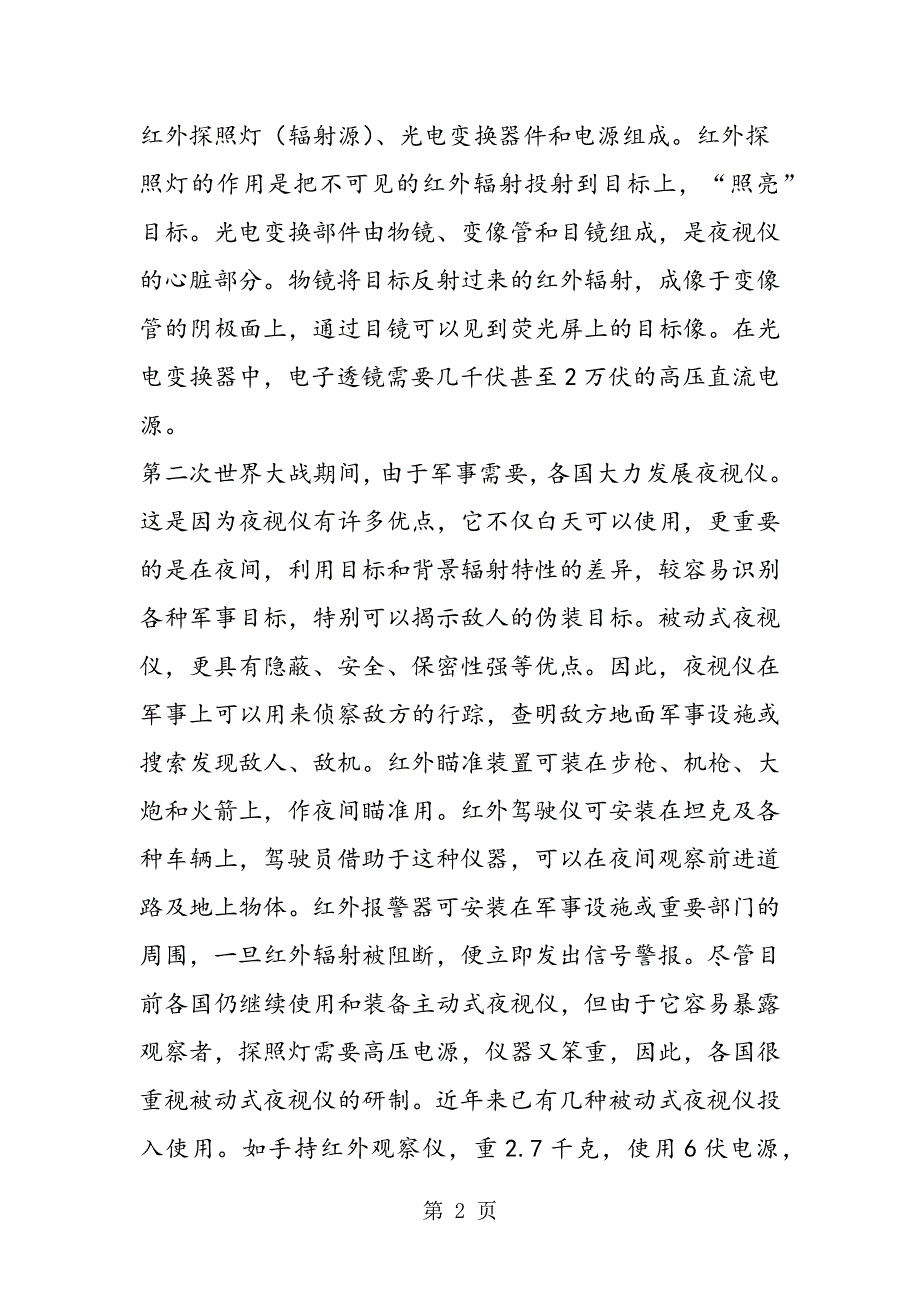 红外探照灯（辐射源）、光电变换器件和电源组成。红外探
照灯的作用是把不可见的红外辐射投射到目标上，“照亮”
目标。光电变换部件由物镜、变像管和目镜组成，是夜视仪
的心脏部分。物镜将目标反射过来的红外辐射，成像于变像
管的阴极面上，通过目镜可以见到荧光屏上的目标像。在光
电变换器中，电子透镜需要几千伏甚至2万伏的高压直流电
源。
第二次世界大战期间，由于军事需要，各国大力发展夜视仪。
这是因为夜视仪有许多优点，它不仅白天可以使用，更重要
的是在夜间，利用目标和背景辐射特性的差异，较容易识别
各种军事目标，特别可以揭示敌人的伪装目标。被动式夜视
仪，更具有隐蔽、安全、保密性强等优点。因此，夜视仪在
军事上可以用来侦察敌方的行踪，查明敌方地面军事设施或
搜索发现敌人、敌机。红外瞄准装置可装在步枪、机枪、大
炮和火箭上，作夜间瞄准用。红外驾驶仪可安装在坦克及各
种车辆上，驾驶员借助于这种仪器，可以在夜间观察前进道
路及地上物体。红外报警器可安装在军事设施或重要部门的
周围，一旦红外辐射被阻断，便立即发出信号警报。尽管目
前各国仍继续使用和装备主动式夜视仪，但由于它容易暴露
观察者，探照灯需要高压电源，仪器又笨重，因此，各国很
重视被动式夜视仪的研制。近年来已有几种被动式夜视仪投
入使用。如手持红外观察仪，重2.7千克，使用6伏电源，
第 2 页